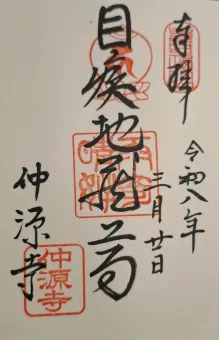 奉拝
令和八年
三月廿日
目疾地蔵尊
仲源寺
仲源寺